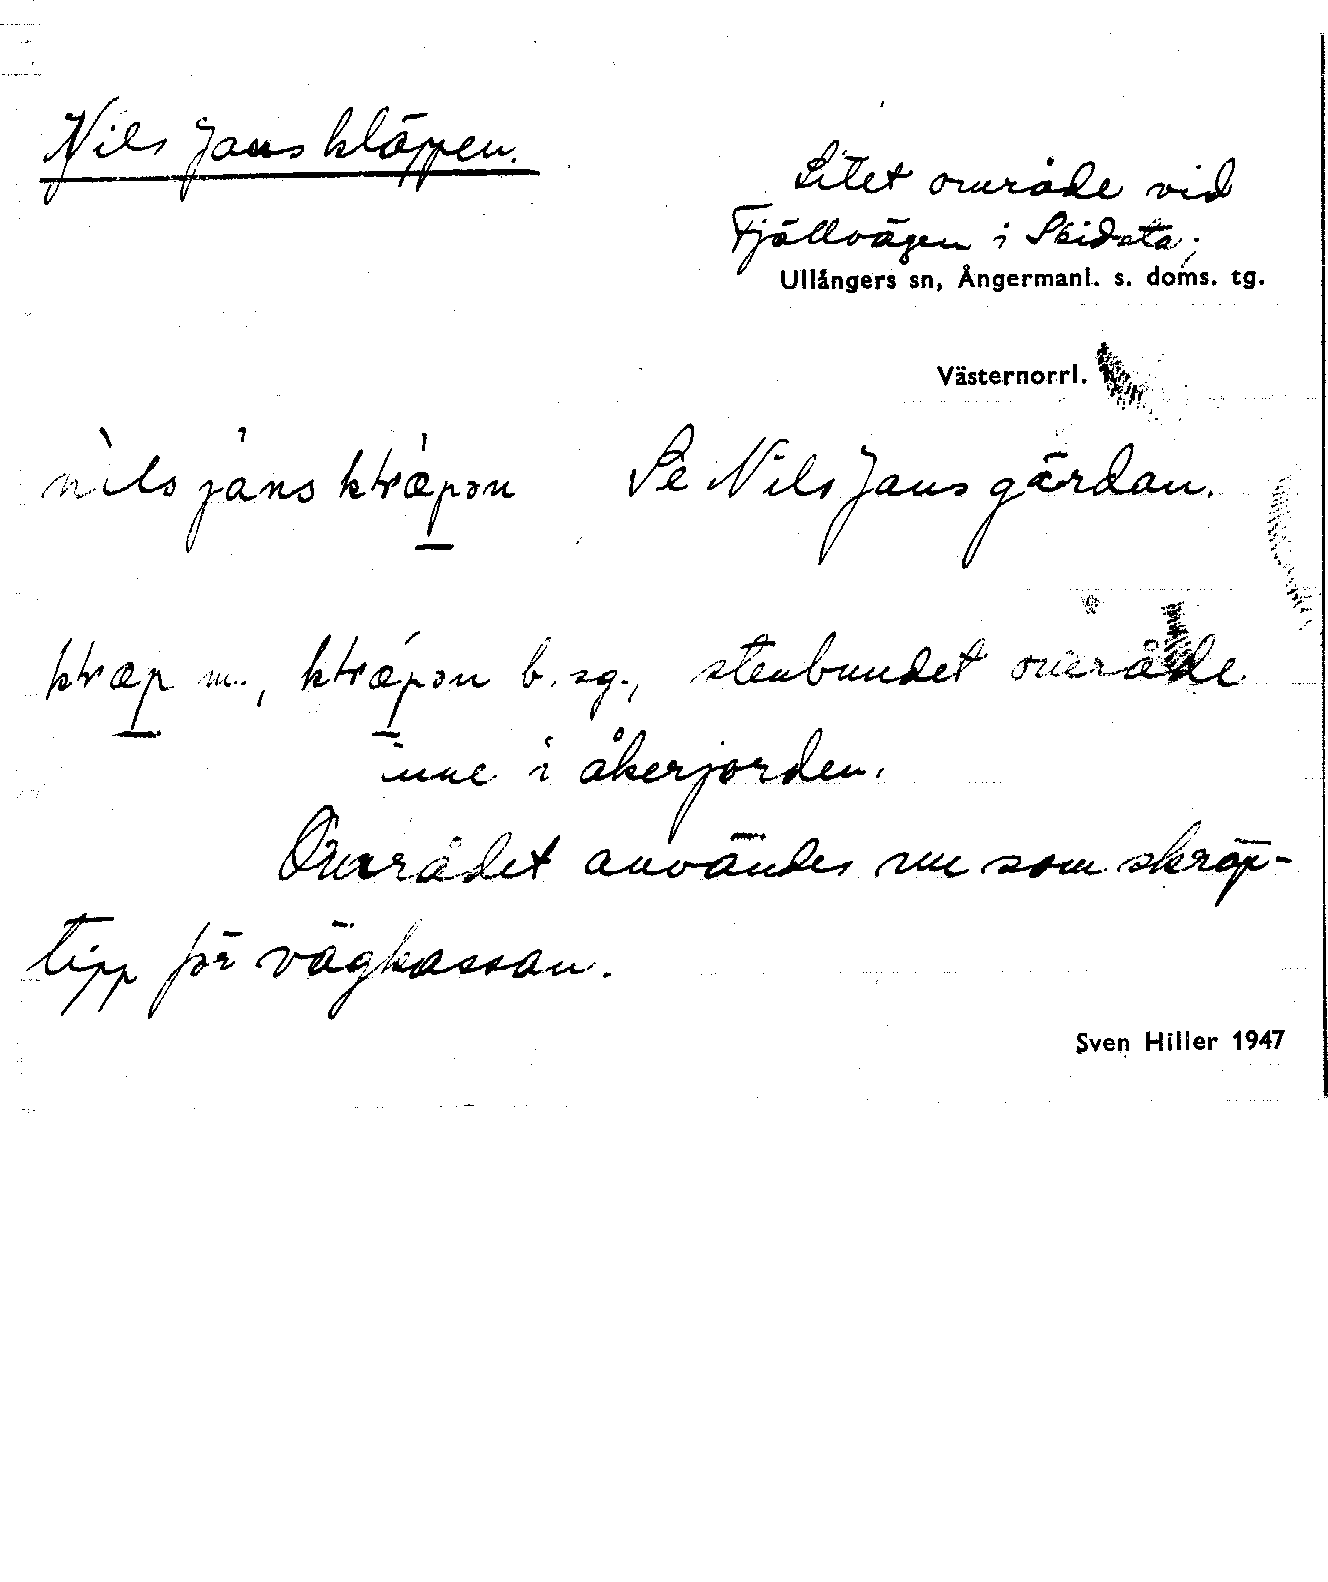 Nils Janskläppen.
Litet område vid
Fjällvägen i Skidsta;
Ullångers sn, Ångermanl. s. doms. tg.
Västernorrl.
Se Nils Jansgärdan.
m., b. sg., stenbundet område
inne i åkerjorden.
Området användes nu som skräp-
tipp för vägkassan.
Sven Hiller 1947